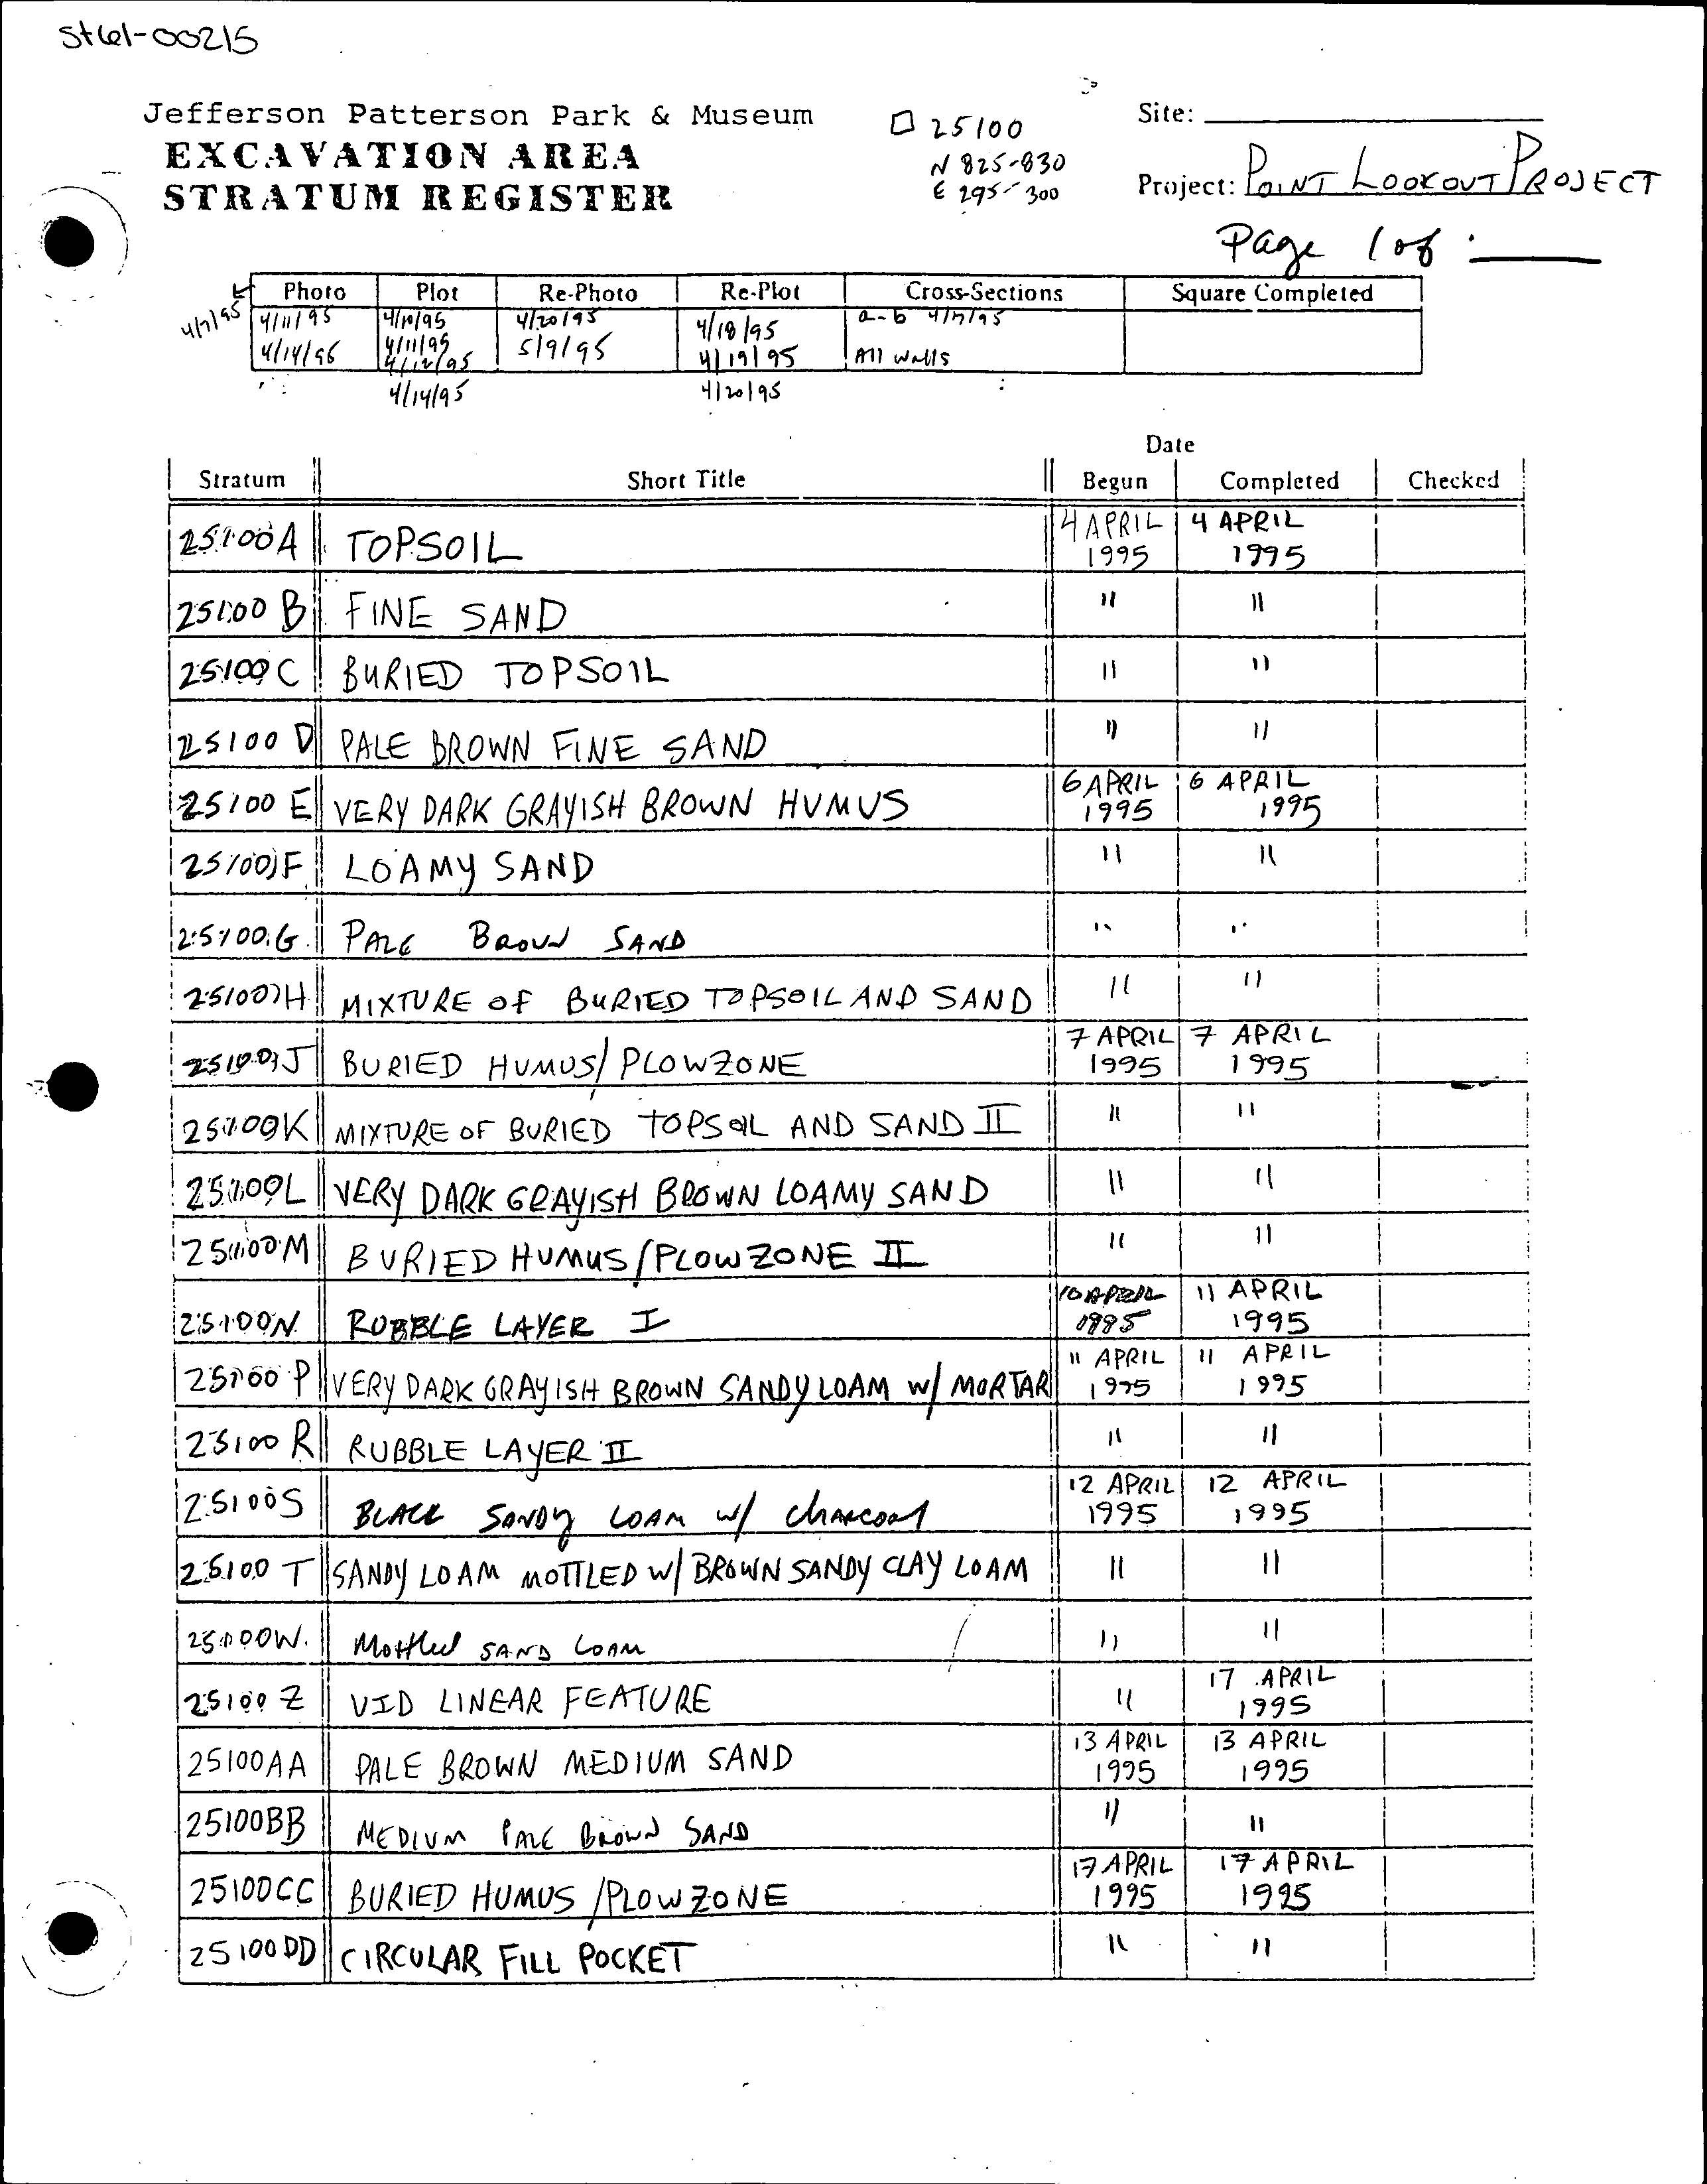 St61-00215
Jefferson Patterson Park & Museum
EXCAVATION AREA
STRATUM REGISTER
□ 25100
N 825-830
E 295-300
Site:
Project: POINT LOOKOUT PROJECT
Page 1 of
Photo Plot Re-Photo Re-Plot Cross-Sections Square Completed
4/7/95 4/11/95 4/10/95 4/20/95 4/18/95 a-b 4/17/95
4/14/96 4/11/95 5/9/95 4/19/95 All walls
4/12/95
4/14/95 4/20/95
Date
Stratum Short Title Begun Completed Checked
25100A TOPSOIL 4 APRIL 1995 4 APRIL 1995
25100 B FINE SAND " "
25100 C BURIED TOPSOIL " "
25100 D PALE BROWN FINE SAND " "
25100 E VERY DARK GRAYISH BROWN HUMUS 6 APRIL 1995 6 APRIL 1995
25100 F LOAMY SAND " "
25100 G PALE BROWN SAND " "
25100 H MIXTURE OF BURIED TOPSOIL AND SAND " "
25100 J BURIED HUMUS/PLOWZONE 7 APRIL 1995 7 APRIL 1995
25100K MIXTURE OF BURIED TOPSOIL AND SAND II " "
25100L VERY DARK GRAYISH BROWN LOAMY SAND " "
25100M BURIED HUMUS/PLOWZONE II " "
25100N RUBBLE LAYER I 10 APRIL 1995 11 APRIL 1995
25100 P VERY DARK GRAYISH BROWN SANDY LOAM W/ MORTAR 11 APRIL 1995 11 APRIL 1995
25100 R RUBBLE LAYER II " "
25100S BLACK SANDY LOAM w/ charcoal 12 APRIL 1995 12 APRIL 1995
25100 T SANDY LOAM MOTTLED W/ BROWN SANDY CLAY LOAM " "
25100W. Mottled SAND LOAM " "
25100 Z VID LINEAR FEATURE " 17 APRIL 1995
25100AA PALE BROWN MEDIUM SAND 13 APRIL 1995 13 APRIL 1995
25100BB MEDIUM PALE BROWN SAND " "
25100CC BURIED HUMUS/PLOWZONE 17 APRIL 1995 17 APRIL 1995
25100DD CIRCULAR FILL POCKET " "